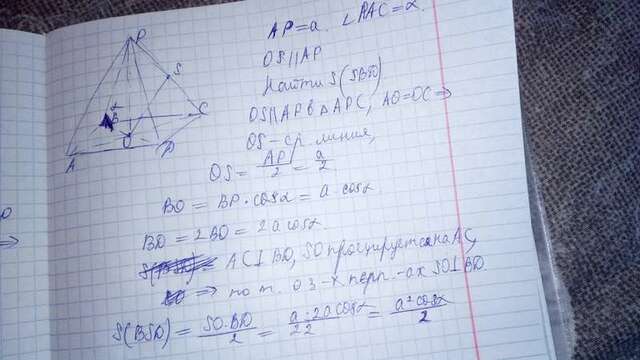 P
S
C
B
α
O
A
D
AP=a. ∠PAC=α.
OS||AP
Найти S(SBD)
OS||AP в △APC, AO=OC ⇒
OS-ср. линия,
OS = AP/2 = a/2.
BO = BP·cosα = a cosα.
BD = 2BO = 2a cosα.
AC⊥BD, SO проецируется на AC,
⇒ по т. о 3-х перп.-ах SO⊥BD
S(BSD) = SO·BD/2 = a·2a cosα/2·2 = a²cosα/2
⇒